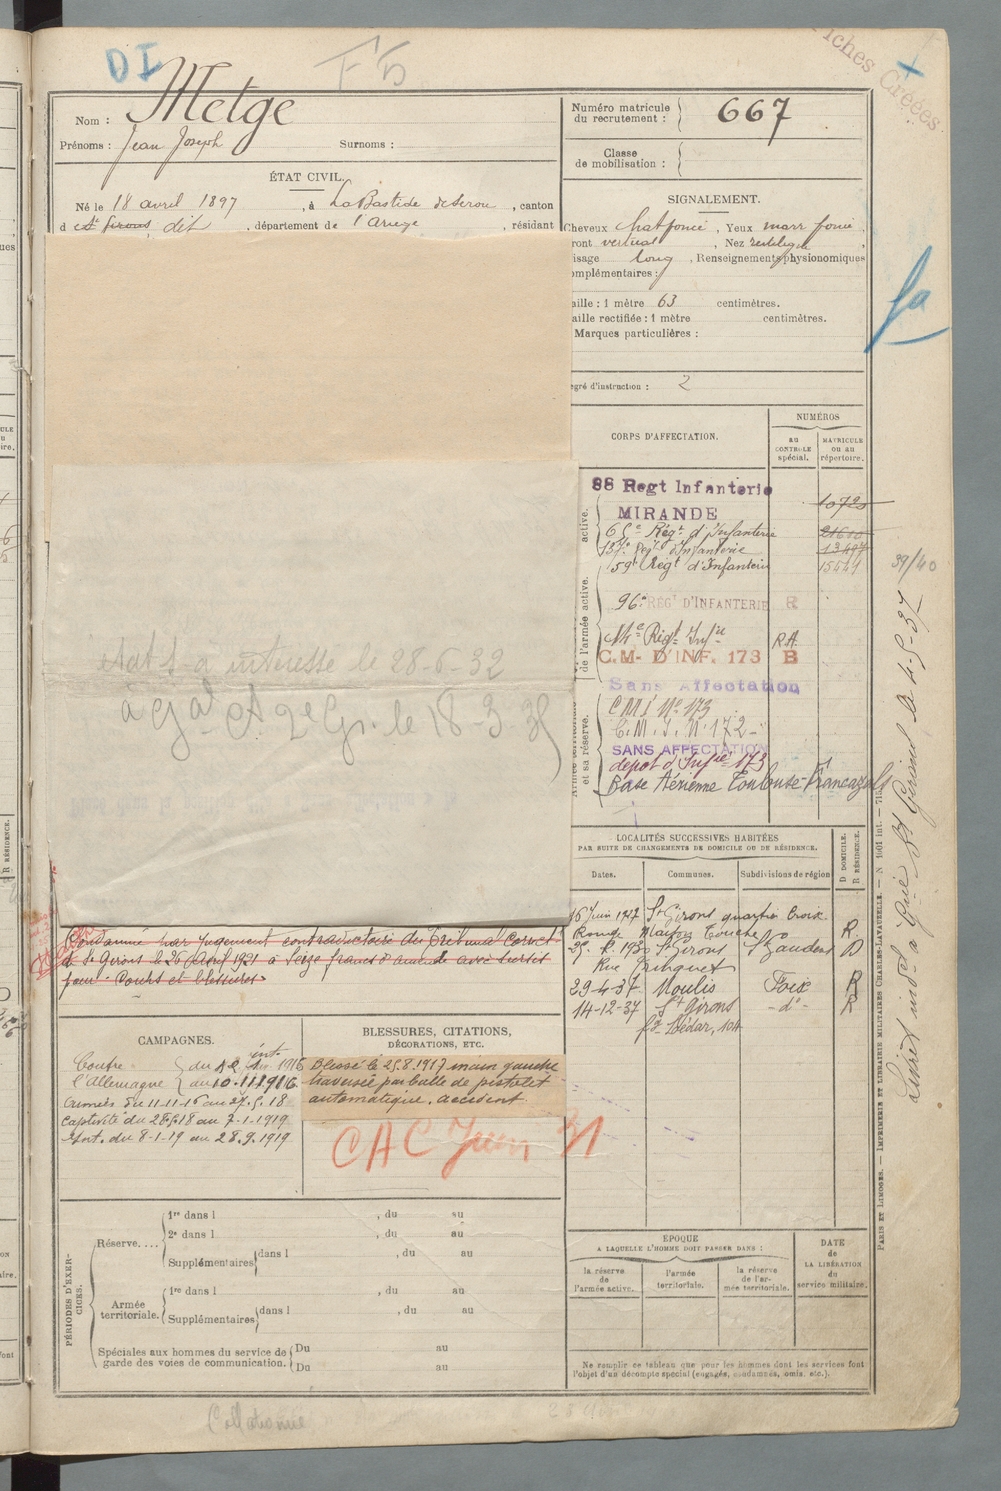 DI
F 5
iches Créées
Nom : Metge
Prénoms : Jean Joseph Surnoms :
Numéro matricule
du recrutement : 667
Classe
de mobilisation :
ÉTAT CIVIL.
Né le 18 avril 1897, à LaBastide deSerou, canton
d e St Girons dit, département de l'Ariège, résidant
SIGNALEMENT.
Cheveux chat foncé, Yeux marr foncé,
ront vertical, Nez rectiligne,
isage long, Renseignements physionomiques
omplémentaires :
aille : 1 mètre 63 centimètres.
aille rectifiée : 1 mètre centimètres.
Marques particulières :
egré d'instruction : 2
CORPS D'AFFECTATION.
NUMÉROS
au
CONTRÔLE
spécial.
MATRICULE
ou au
répertoire.
active.
88 Regt Infanterie
MIRANDE
10720
Régt d'Infanterie 21610
137e Régt d'Infanterie 13497
59e Régt d'Infanterie
de l'armée active.
96e REGt D'INFANTERIE R
Régt Infre RA
C.M. D'INF. 173 B
Sans Affectation
Armée territoriale
et sa réserve.
CMI No 173
C.M.I. N 172
SANS AFFECTATION
depot d'Infie 173
Base Aérienne Toulouse-Francazals
état s à intéressé le 28-6-32
le 18-3-35
Condamné par jugement contradictoire du Tribunal Correct
d St Girons le 26 Avril 1921 à Seize francs d'amende avec sursis
pour Coups et blessures
LOCALITÉS SUCCESSIVES HABITÉES
PAR SUITE DE CHANGEMENTS DE DOMICILE OU DE RÉSIDENCE.
Dates. Communes. Subdivisions de région
D DOMICILE.
R RÉSIDENCE.
16 Juin 1927 St Girons quartier Croix
Rouge Maison Touche R.
1930 St Girons St Gaudens D
Rue Trinquet
29-4-37 Moulis Foix R
14-12-37 St Girons -do- R
fg Lédar, 104
CAMPAGNES.
Contre
l'Allemagne
int.
du 12 1916
au 10.11.1916
Armées du 11-11-16 au 27.5.18
Captivité du 28.5.18 au 7-1-1919
Int. du 8-1-19 au 28.9.1919
BLESSURES, CITATIONS,
DÉCORATIONS, ETC.
Blessé le 25.8.1917 main gauche
traversée par balle de pistolet
automatique. accident
CAC Juin 31
PÉRIODES D'EXER-
CICES.
Réserve....
1re dans l , du au
2e dans l , du au
Supplémentaires dans l , du au
Armée
territoriale.
1re dans l , du au
Supplémentaires dans l , du au
Spéciales aux hommes du service de
garde des voies de communication.
Du au
Du au
ÉPOQUE
A LAQUELLE L'HOMME DOIT PASSER DANS :
la réserve
de
l'armée active.
l'armée
territoriale.
la réserve
de l'ar-
mée territoriale.
DATE
de
LA LIBÉRATION
du
service militaire.
Ne remplir ce tableau que pour les hommes dont les services font
l'objet d'un décompte spécial (engagés, condamnés, omis, etc.).
39/40
PARIS ET LIMOGES. — IMPRIMERIE ET LIBRAIRIE MILITAIRES CHARLES-LAVAUZELLE. — N 1601 int. — 715.
Collationné